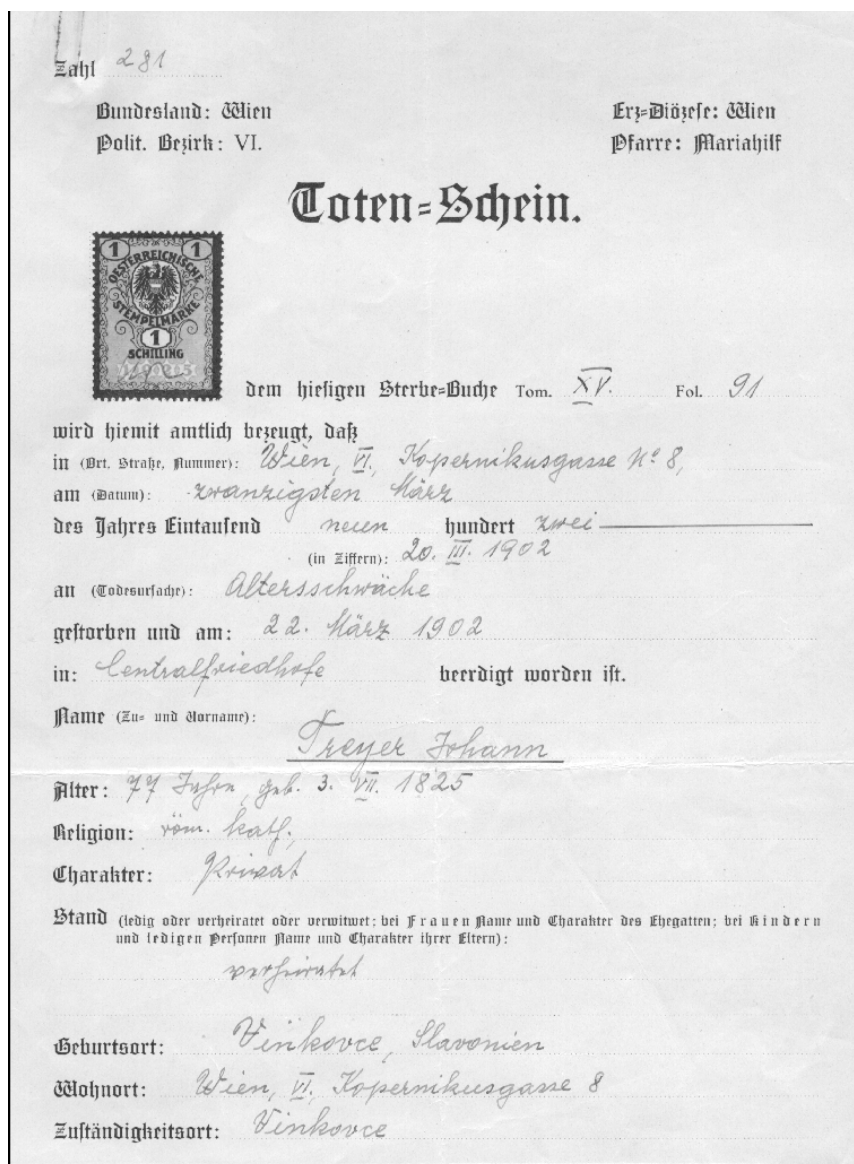 Zahl 281
Bundesland: Wien
Erz-Diözese: Wien
Polit. Bezirk: VI.
Pfarre: Mariahilf
Toten-Schein.
1 1
OESTERREICHISCHE
STEMPELMARKE
1
SCHILLING
dem hiesigen Sterbe-Buche Tom. XV. Fol. 91
wird hiemit amtlich bezeugt, daß
in (Ort, Straße, Nummer): Wien, VI., Kopernikusgasse No. 8,
am (Datum): zwanzigsten März
des Jahres Eintausend neun hundert zwei
(in Ziffern): 20. III. 1902
an (Todesursache): Altersschwäche
gestorben und am: 22. März 1902
in: Centralfriedhofe beerdigt worden ist.
Name (Zu- und Vorname):
Treyer Johann
Alter: 77 Jahre, geb. 3. VII. 1825
Religion: röm. kath.,
Charakter: Privat
Stand (ledig oder verheiratet oder verwitwet; bei Frauen Name und Charakter des Ehegatten; bei Kindern
und ledigen Personen Name und Charakter ihrer Eltern):
verheiratet
Geburtsort: Vinkovce, Slavonien
Wohnort: Wien, VI., Kopernikusgasse 8
Zuständigkeitsort: Vinkovce